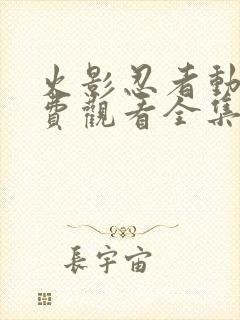 火影忍者動
費觀看全集
長宇宙